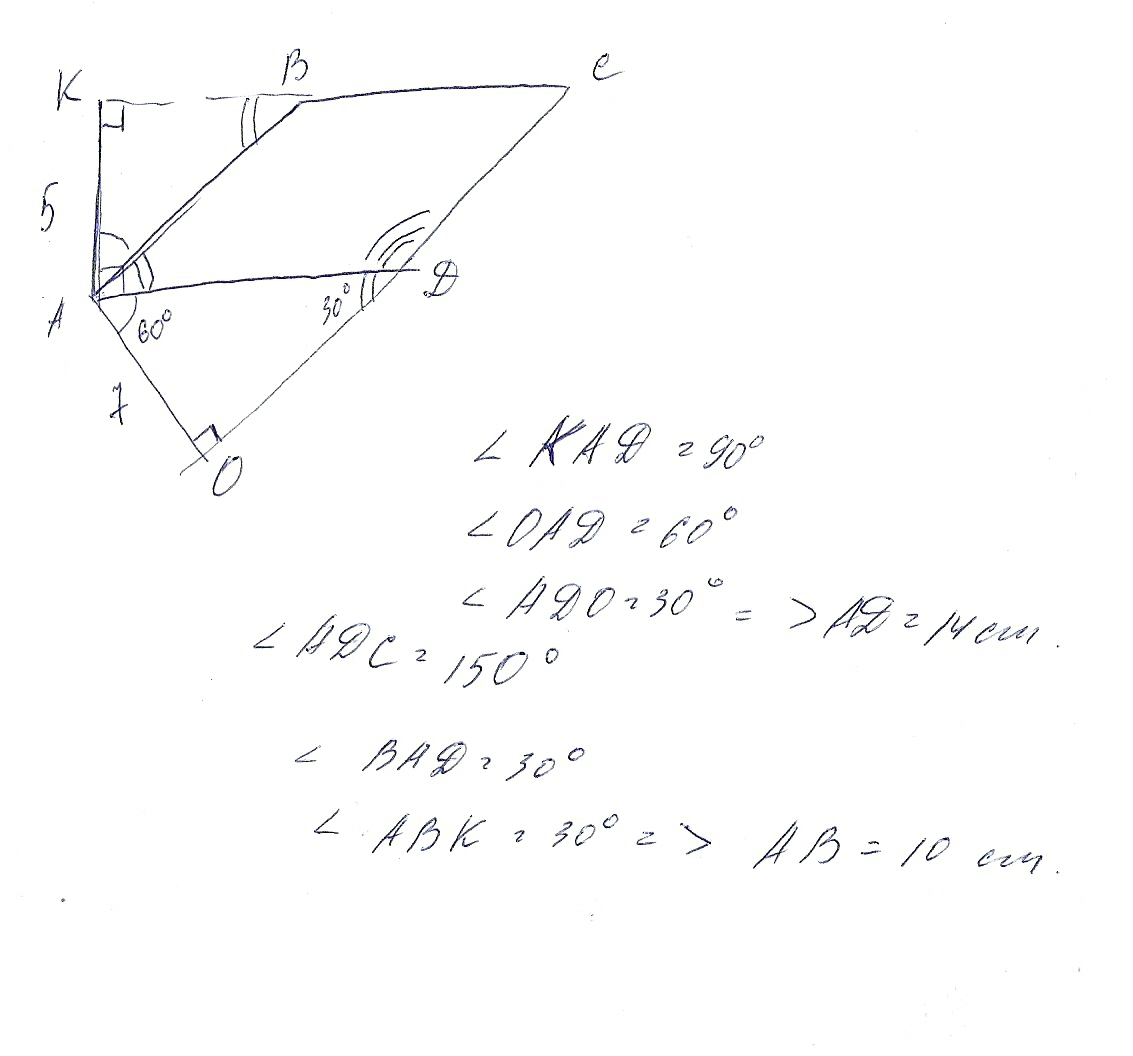 K
B
C
5
A
60°
30°
D
7
O
< KAD = 90°
< OAD = 60°
< ADO = 30° => AD = 14 cm.
< ADC = 150°
< BAD = 30°
< ABK = 30° => AB = 10 cm.